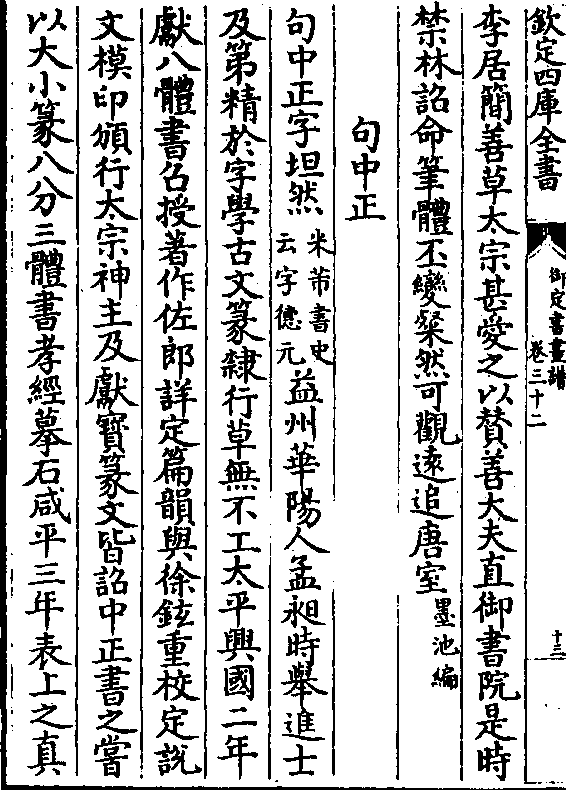 欽定四庫全書
御定書畫譜
卷三十二
十三
李居簡善草太宗甚愛之以贊善大夫直御書院是時
禁林詔命筆體丕變粲然可觀遠追唐室墨池編
句中正
句中正字坦然米芾書史云字德元益州華陽人孟昶時舉進士
及第精於字學古文篆隸行草無不工太平興國二年
獻八體書召授著作佐郎詳定篇韻與徐鉉重校定說
文模印頒行太宗神主及獻寳篆文皆詔中正書之嘗
以大小篆八分三體書孝經摹石咸平三年表上之真